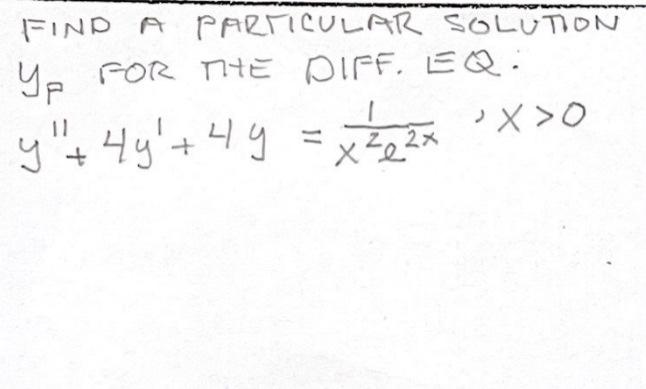 FIND A PARTICULAR SOLUTION
yₚ FOR THE DIFF. EQ.
y'' + 4y' + 4y = 1/(x²e²ˣ) , x > 0